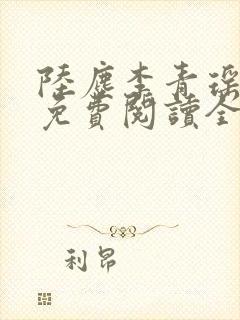 陸塵李青瑤
免費閱讀全
利昂